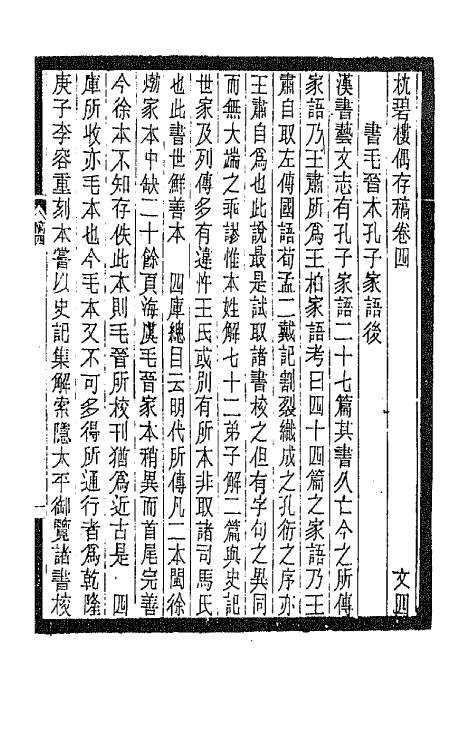 枕碧樓偶存稿卷四　文四
書毛晉本孔子家語後
漢書藝文志有孔子家語二十七篇其書久亡今之所傳
家語乃王肅所為王柏家語考曰四十四篇之家語乃王
肅自取左傳國語荀孟二戴記割裂織成之孔衍之序亦
王肅自為也此說最是試取諸書校之但有字句之異同
而無大端之乖謬惟本姓解七十二弟子解二篇與史記
世家及列傳多有違忤王氏或別有所本非取諸司馬氏
也此書世鮮善本　四庫總目云明代所傳凡二本閩徐
㶿家本中缺二十餘頁海虞毛晉家本稍異而首尾完善
今徐本不知存佚此本則毛晉所校刊猶為近古是　四
庫所收亦毛本也今毛本又不可多得所通行者為乾隆
庚子李容重刻本嘗以史記集解索隱太平御覽諸書校